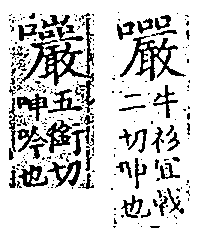 㘖
牛衫宜戟
二切呻也
㘖
五銜切
呻吟也